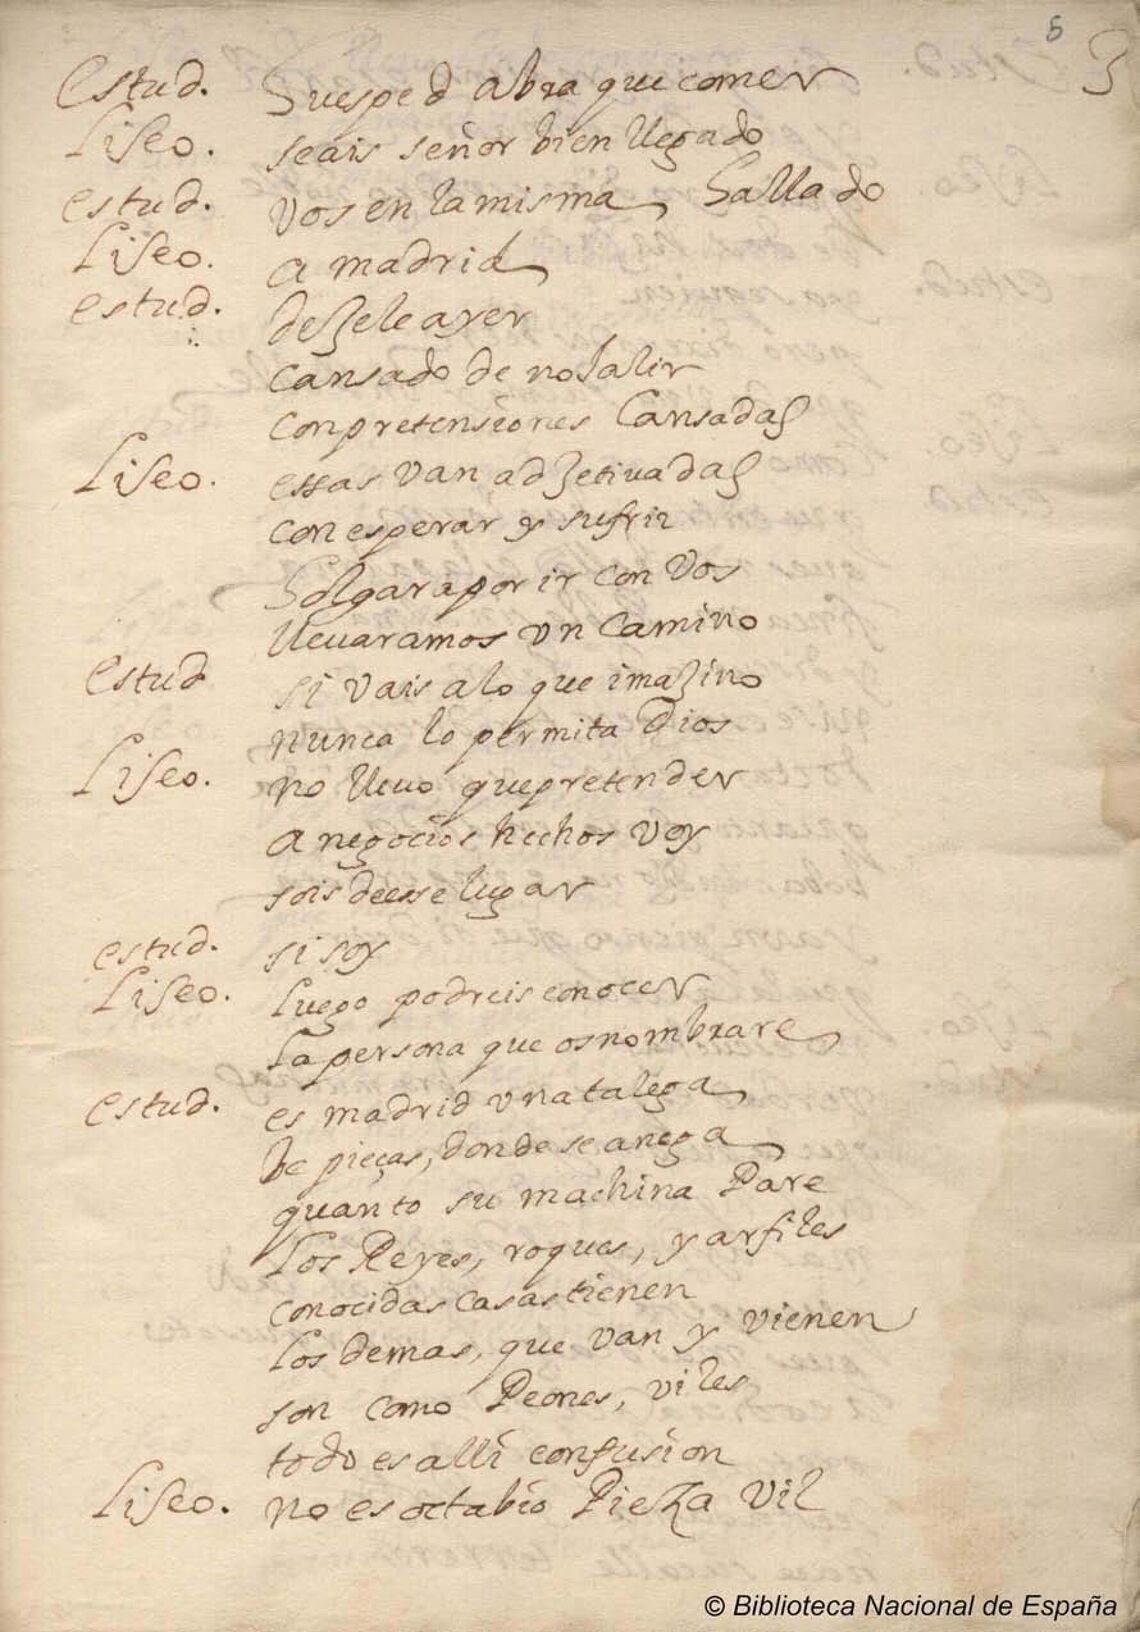 5
3
Estud. Huesped abra que comer
Liseo. seais señor bien llegado
estud. vos en la misma hallado
Liseo. a madrid
estud. dexele ayer
cansado de no salir
con pretensiones Cansadas
Liseo. essas van adjetivadas
con esperar y sufrir
Holgara por ir con Vos
lleuaramos vn Camino
Estud si vais a lo que imagino
nunca lo permita Dios
Liseo. no lleuo que pretender
a negocios hechos voy
sois de esse lugar
estud. si soy
Liseo. luego podreis conocer
la persona que os nombrare
estud. es madrid vna talega
de pieças, donde se anega
quanto su machina Pare
los Reyes, roques, y arfiles
conocidas casas tienen
los demas, que van y vienen
son como Peones, viles
todo es alli confusion
Liseo. no es octabio Pieza Vil
© Biblioteca Nacional de España